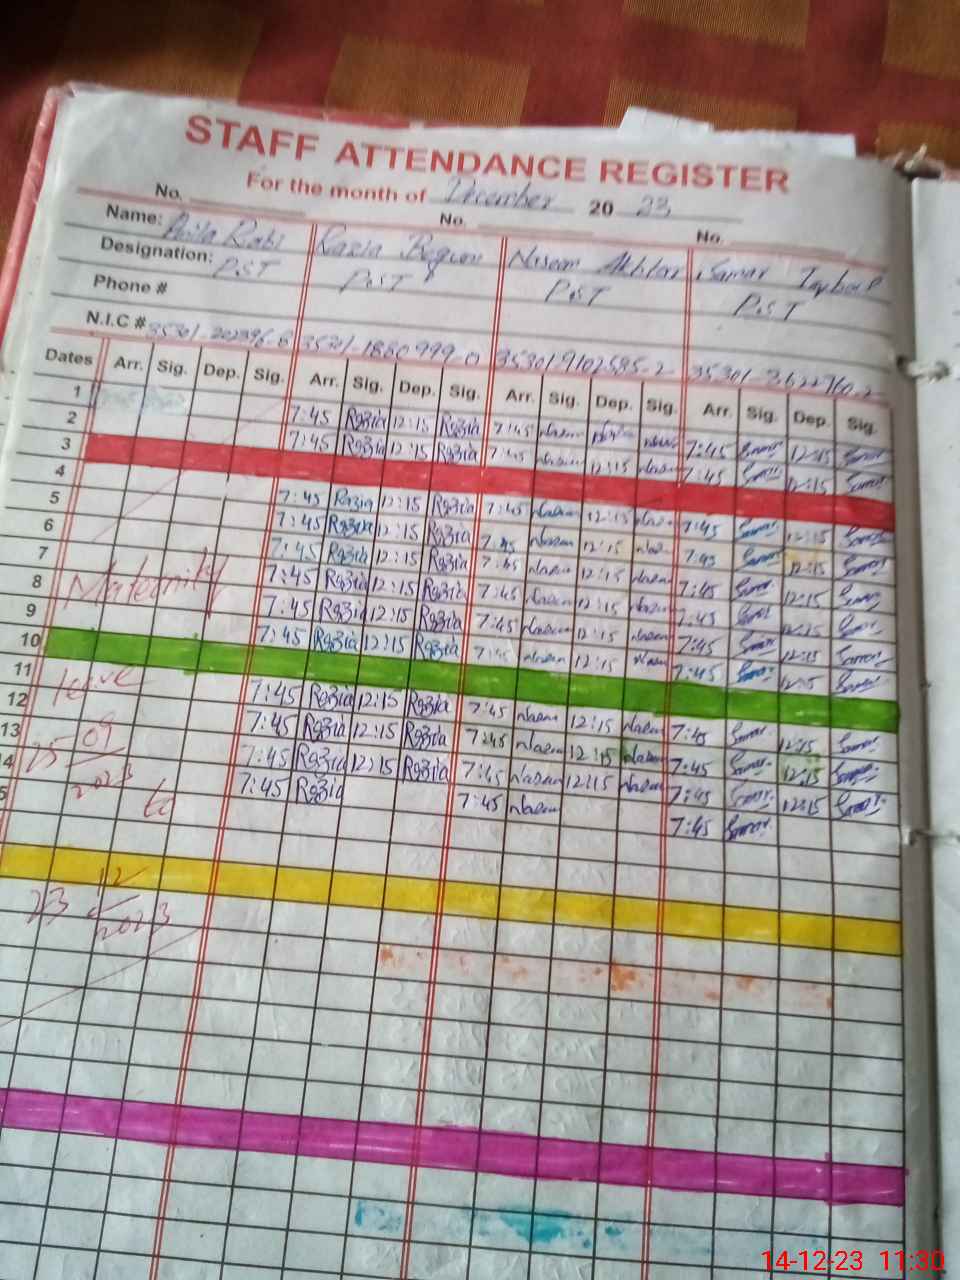 STAFF ATTENDANCE REGISTER
For the month of December 20 23
No. No. No.
Name: Razia Begum Naseem Akhtar Samar
Designation: PST PST PST PST
Phone #
N.I.C # 35301-1880999-0 35301 9102585-2 35301-3622760-2
Dates Arr. Sig. Dep. Sig. Arr. Sig. Dep. Sig. Arr. Sig. Dep. Sig. Arr. Sig. Dep. Sig.
1 7:45 Razia 12:15 Razia 7:45 Naseem 7:45 Samar 12:15 Samar
2 7:45 Razia 12:15 Razia 7:45 Naseem 12:15 Naseem 7:45 Samar 12:15 Samar
3
4 7:45 Razia 12:15 Razia 7:45 Naseem 12:15 Naseem 7:45 Samar 12:15 Samar
5 7:45 Razia 12:15 Razia 7:45 Naseem 12:15 Naseem 7:45 Samar 12:15 Samar
6 7:45 Razia 12:15 Razia 7:45 Naseem 12:15 Naseem 7:45 Samar 12:15 Samar
7 Maternity 7:45 Razia 12:15 Razia 7:45 Naseem 12:15 Naseem 7:45 Samar 12:15 Samar
8 7:45 Razia 12:15 Razia 7:45 Naseem 12:15 Naseem 7:45 Samar 12:15 Samar
9 7:45 Razia 12:15 Razia 7:45 Naseem 12:15 Naseem 7:45 Samar Samar
10
11 leave 7:45 Razia 12:15 Razia 7:45 Naseem 12:15 Naseem 7:45 Samar 12:15 Samar
12 7:45 Razia 12:15 Razia 7:45 Naseem 12:15 Naseem 7:45 Samar 12:15 Samar
13 25 09 2023 7:45 Razia 12:15 Razia 7:45 Naseem 12:15 Naseem 7:45 Samar 12:15 Samar
14 to 7:45 Razia 7:45 Naseem 7:45 Samar
23 12 2023
14-12-23 11:30